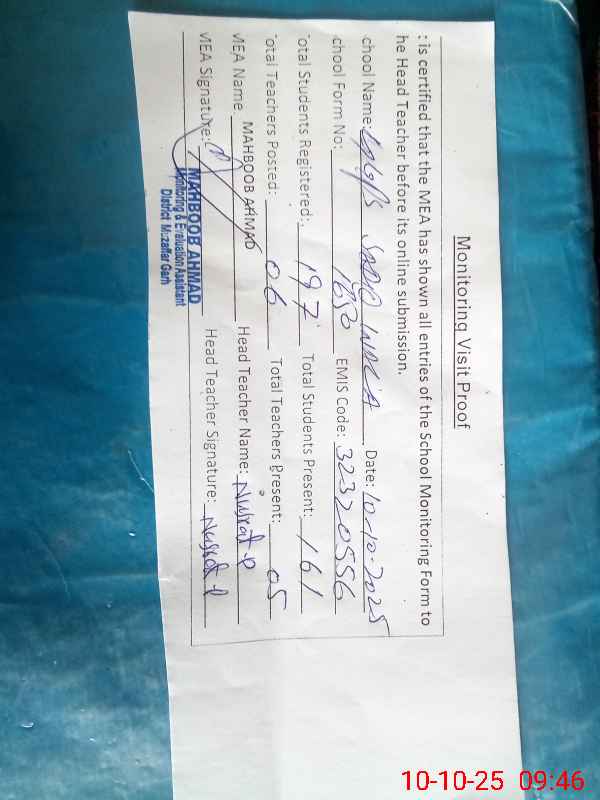 Monitoring Visit Proof
: is certified that the MEA has shown all entries of the School Monitoring Form to
he Head Teacher before its online submission.
chool Name: Date: 10-10-2025
chool Form No: 1650 EMIS Code: 32320556
otal Students Registered: 197 Total Students Present: 161
otal Teachers Posted: 06 Total Teachers Present: 05
MEA Name MAHBOOB AHMAD Head Teacher Name: Nusrat P
MEA Signature: Head Teacher Signature: Nusrat P
MAHBOOB AHMAD
Monitoring & Evaluation Assistant
District Muzaffar Garh
10-10-25 09:46